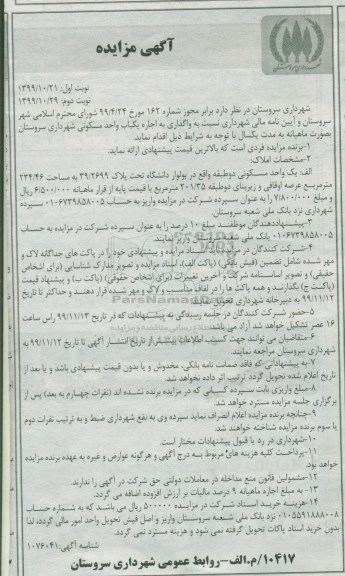 آگهی مزایده
نوبت اول: ۱۳۹۹/۱۰/۲۱
نوبت دوم: ۱۳۹۹/۱۰/۲۹
شهرداری سروستان در نظر دارد برابر مجوز شماره ۱۶۲ مورخ ۹۹/۴/۲۴ شورای محترم اسلامی شهر
سروستان و آیین نامه مالی شهرداری نسبت به واگذاری به اجاره یکباب واحد مسکونی شهرداری سروستان
بصورت ماهیانه به مدت یکسال با توجه به شرایط ذیل اقدام نماید.
۱-برنده مزایده فردی است که بالاترین قیمت پیشنهادی ارائه نماید.
۲-مشخصات املاک:
الف: یک واحد مسکونی دوطبقه واقع در بولوار دانشگاه تحت پلاک ۳۹/۲۶۹۹ به مساحت ۲۳۴/۴۶
مترمربع عرصه اوقافی و زیربنای دوطبقه ۲۰۱/۳۵ مترمربع با قیمت پایه از قرار ماهیانه ۶/۵۰۰/۰۰۰ ریال
و مبلغ ۷/۸۰۰/۰۰۰ را به عنوان سپرده شرکت در مزایده واریز به حساب ۰۱۰۶۷۳۹۸۵۸۰۰۵ سپرده
شهرداری نزد بانک ملی شعبه سروستان.
۳-پیشنهاددهندگان موظفند مبلغ ۱۰ درصد را به عنوان سپرده شرکت در مزایده به حساب
۰۱۰۶۷۳۹۸۵۸۰۰۵ بانک ملی شعبه سروستان واریز نمایند.
۴-شرکت کنندگان در مزایده باید اسناد مزایده و پیشنهادی خود را در پاکت های جداگانه لاک و
مهر شده شامل تضمین (فیش بانکی) (پاکت الف)، اسناد مزایده و تصویر مدارک شناسایی (برای اشخاص
حقیقی) و تصویر اساسنامه شرکت و آخرین تغییرات (برای اشخاص حقوقی) (پاکت ب) و پیشنهاد قیمت
(پاکت ج) بگذارنید و همه پاکت ها را در لفاف مناسب و لاک و مهر شده قرار دهند و حداکثر تا تاریخ
۹۹/۱۱/۱۲ به دبیرخانه شهرداری تحویل دهند.
۵-حضور شرکت کنندگان در جلسه رسیدگی به پیشنهادات که در تاریخ ۹۹/۱۱/۱۳ راس ساعت
۱۶ عصر تشکیل خواهد شد آزاد می باشد.
۶-متقاضیان می توانند جهت کسب اطلاعات بیشتر از تاریخ انتشار آگهی تا تاریخ ۹۹/۱۱/۱۲ به
شهرداری سروستان مراجعه نمایند.
۷-به پیشنهاداتی که فاقد ضمانت نامه بانکی، مخدوش و یا بدون قیمت پیشنهادی باشد و یا بعد از
تاریخ اعلام شده تحویل گردد ترتیب اثر داده نخواهد شد.
۸-مبلغ واریزی بابت سپرده کسانی که در مزایده برنده نشده اند (نفرات چهارم به بعد) پس از
برگزاری جلسه مزایده مسترد خواهد شد.
۹-چنانچه برنده مزایده اعلام انصراف نماید سپرده وی به نفع شهرداری ضبط و به ترتیب نفرات دوم
یا سوم برنده مزایده شناخته خواهند شد.
۱۰-شهرداری در رد یا قبول پیشنهادات مختار است.
۱۱-پرداخت کلیه هزینه های مربوط به درج آگهی و هرگونه عوارض و غیره به عهده برنده مزایده
خواهد بود.
۱۲-مشمولین قانون منع مداخله در معاملات دولتی حق شرکت در آگهی را ندارند.
۱۳-به مبلغ اجاره ماهیانه ۹ درصد مالیات بر ارزش افزوده اضافه می گردد.
۱۴-هزینه خرید اسناد شرکت در مزایده ۵۰۰۰۰۰ ریال می باشد که به شماره حساب
۰۱۰۵۵۹۱۸۸۸۰۰۸ نزد بانک ملی شعبه سروستان واریز و اصل فیش تحویل واحد امور مالی گردد، لذا
بدون خرید اسناد پاکات تحویل گرفته نمی شود و هزینه مسترد نمی گردد.
شناسه آگهی: ۱۰۷۶۰۴۱
۱۰۴۱۷/م.الف-روابط عمومی شهرداری سروستان